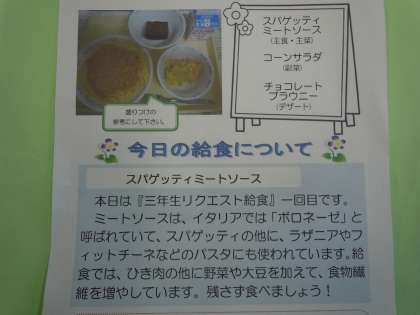 盛りつけの
参考にして下さい。
スパゲッティ
ミートソース
(主食・主菜)
コーンサラダ
(副菜)
チョコレート
ブラウニー
(デザート)
今日の給食について
スパゲッティミートソース
本日は『三年生リクエスト給食』一回目です。
ミートソースは、イタリアでは「ボロネーゼ」と
呼ばれていて、スパゲッティの他に、ラザニアやフ
ィットチーネなどのパスタにも使われています。給
食では、ひき肉の他に野菜や大豆を加えて、食物繊
維を増やしています。残さず食べましょう！